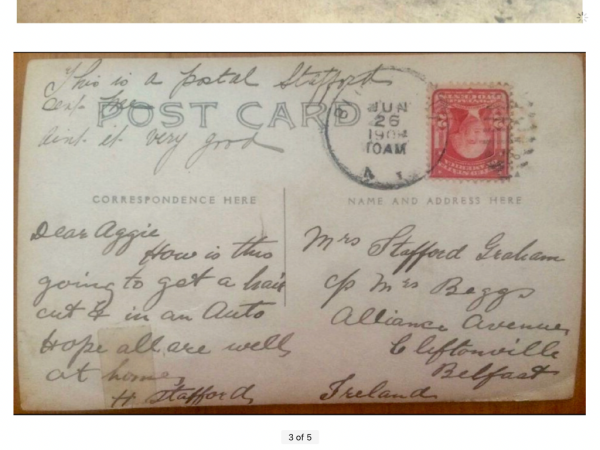 This is a postal Stafford
sent
POST CARD
aint it very good
JUN
26
190
10AM
CORRESPONDENCE HERE
NAME AND ADDRESS HERE
Dear Aggie
How is this
going to get a hair
cut & in an Auto
Hope all are well
at home
H Stafford
Mrs Stafford Graham
c/o Mrs Beggs
Alliance Avenue
Cliftonville
Belfast
Ireland
3 of 5